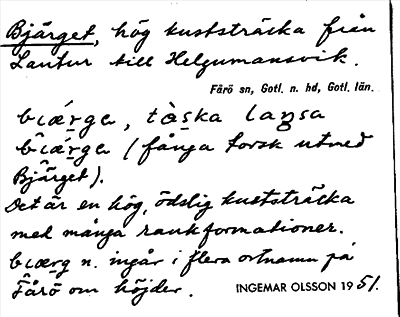 Bjärget, hög kuststräcka från
Lautur till Helgumansvik.
Fårö sn, Gotl. n. hd, Gotl. län.
bi̯ærge, tàska laŋsa
bi̯ærge (fånga torsk utmed
Bjärget).
Det är en hög, ödslig kuststräcka
med många raukformationer.
bi̯ærg n. ingår i flera ortnamn på
Fårö om höjder.
INGEMAR OLSSON 1951.